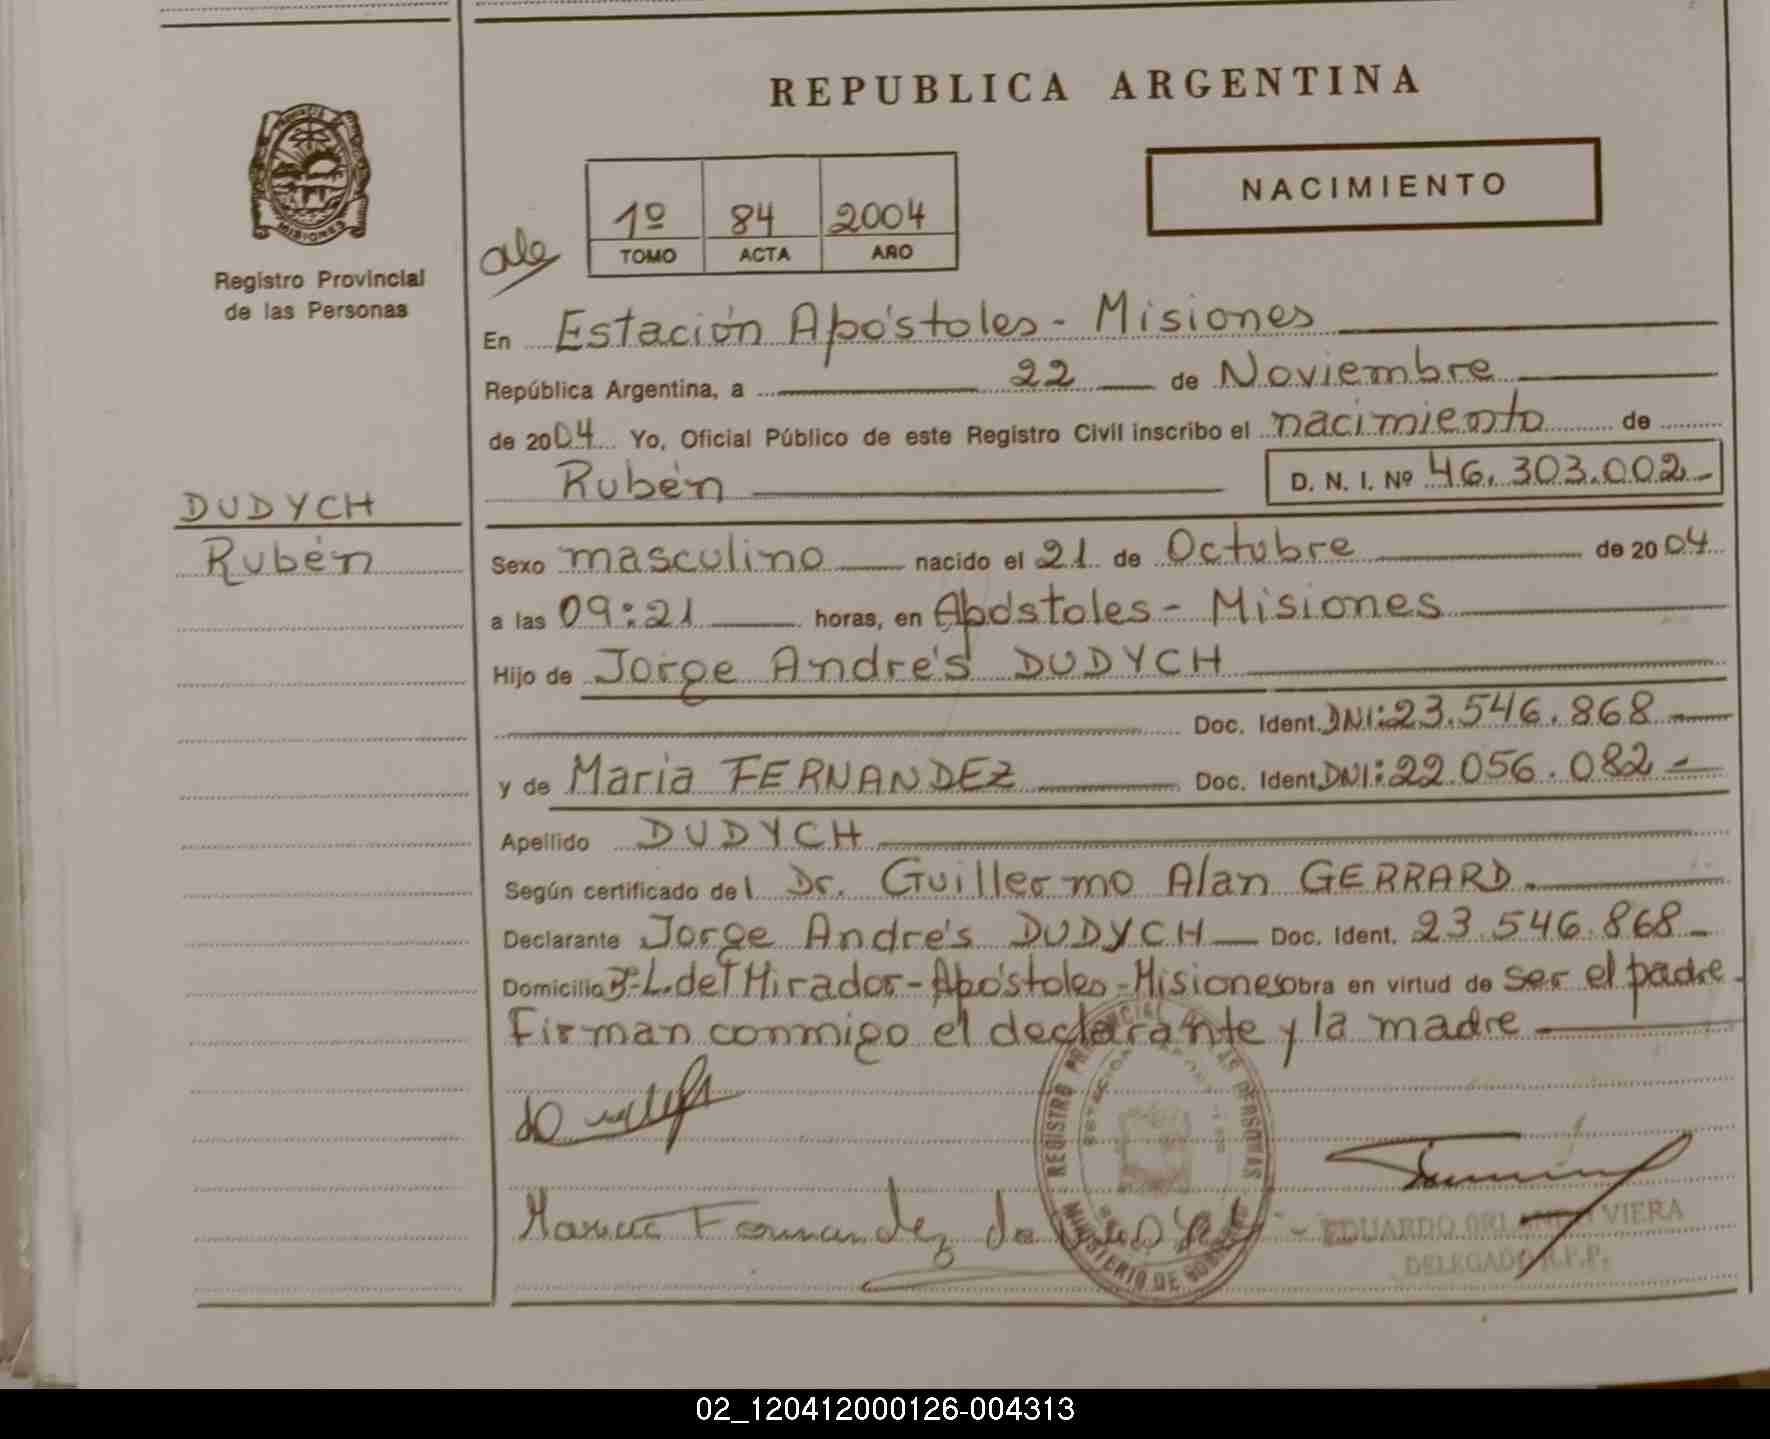 REPUBLICA ARGENTINA
NACIMIENTO
MISIONES
Registro Provincial
de las Personas
1º 84 2004
TOMO ACTA AÑO
En Estación Apóstoles - Misiones
República Argentina, a 22 de Noviembre
de 2004 Yo, Oficial Público de este Registro Civil inscribo el nacimiento de
Rubén D. N. I. Nº 46.303.002-
DUDYCH
Rubén
Sexo masculino nacido el 21 de Octubre de 2004
a las 09:21 horas, en Apóstoles - Misiones
Hijo de Jorge Andrés DUDYCH
Doc. Ident. DNI: 23.546.868
y de Maria FERNANDEZ Doc. Ident. DNI: 22.056.082 -
Apellido DUDYCH
Según certificado del Dr. Guillermo Alan GERRARD.
Declarante Jorge Andrés DUDYCH Doc. Ident. 23.546.868 -
Domicilio Bº L. del Mirador - Apóstoles - Misiones obra en virtud de ser el padre.
Firman conmigo el declarante y la madre
REGISTRO PROVINCIAL DE LAS PERSONAS
MINISTERIO DE GOBIERNO
Fernandez de
EDUARDO ORLANDO VIERA
DELEGADO R.P.P.
02_120412000126-004313